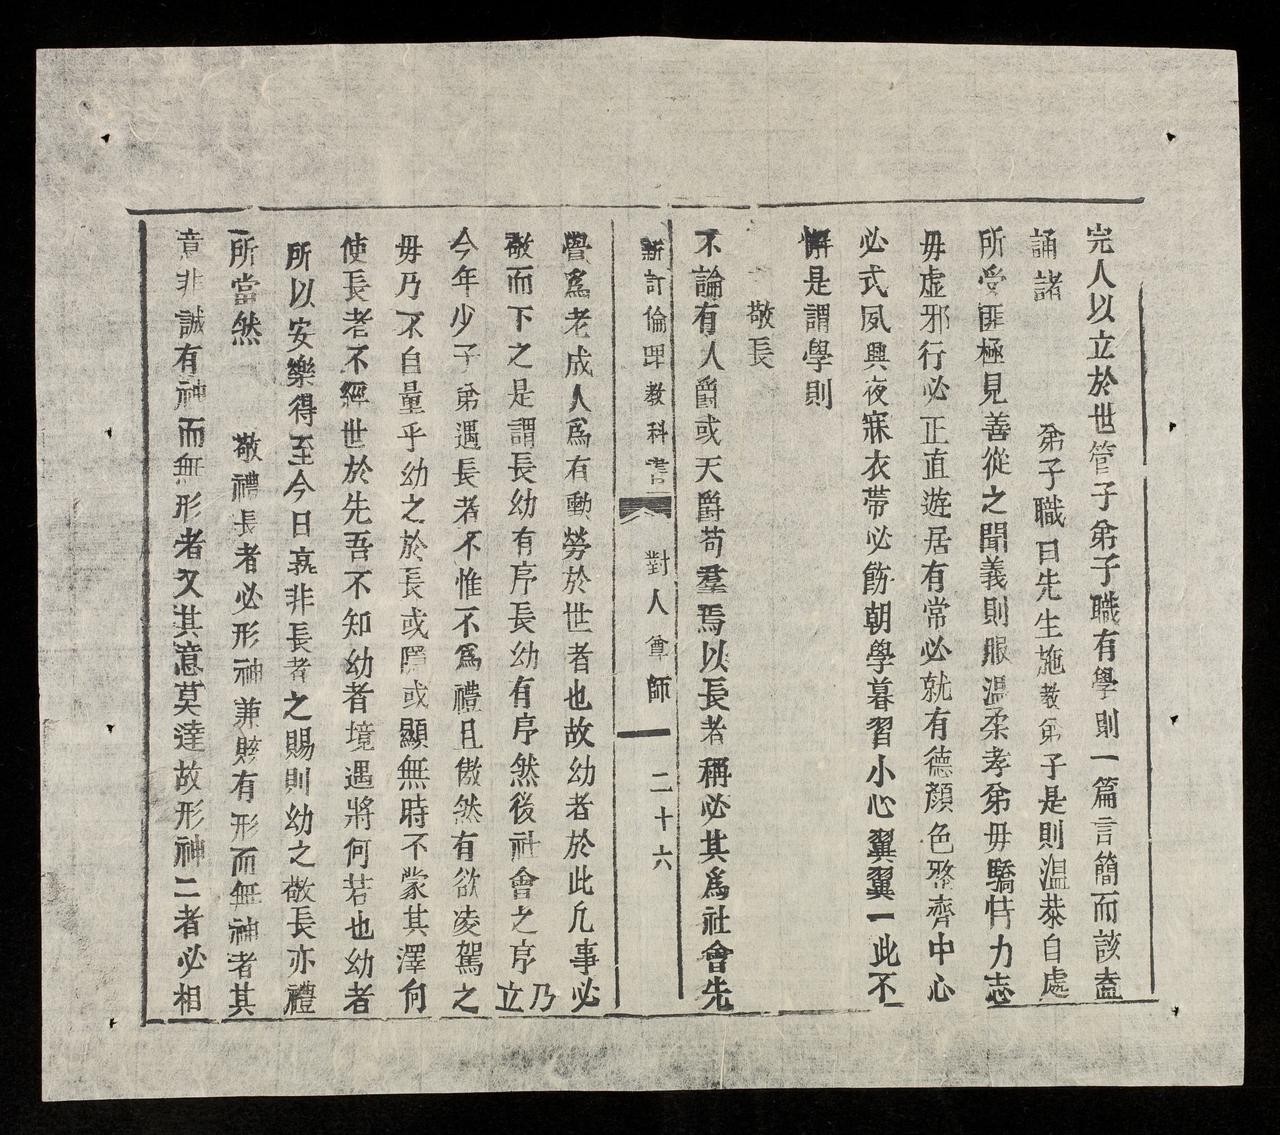 完人以立於世管子弟子職有學則一篇言簡而該盍
誦諸 弟子職曰先生施教弟子是則温恭自處
所受匪極見善從之聞義則服温柔孝弟毋驕恃力志
毋虚邪行必正直遊居有常必就有德顏色整齊中心
必式夙興夜寐衣帶必飭朝學暮習小心翼翼一此不
懈是謂學則
敬長
不論有人爵或天爵苟羣焉以長者稱必其爲社會先
新訂倫理教科書 對人 尊師 二十六
覺爲老成人爲有勳勞於世者也故幼者於此凡事必
敬而下之是謂長幼有序長幼有序然後社會之序乃立
今年少子弟遇長者不惟不爲禮且傲然有欲凌駕之
毋乃不自量乎幼之於長或隱或顯無時不蒙其澤何
使長老不經世於先吾不知幼者境遇將何若也幼者
所以安樂得至今日孰非長者之賜則幼之敬長亦禮
所當然 敬禮長者必形神兼賅有形而無神者其
意非誠有神而無形者又其意莫達故形神二者必相